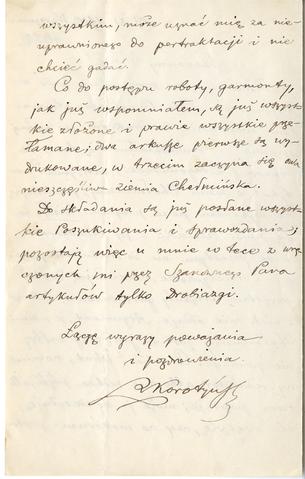 wszystkim, może uznać mię za nie-
uprawnionego do pertraktacji i nie
chcieć gadać.
Co do postępu roboty, garmonty,
jak już wspomniałem, są już wszyst-
kie złożone i prawie wszystkie prze-
łamane; dwa arkusze pierwsze są wy-
drukowane, w trzecim zaczyna się
nieszczęśliwa ziemia Chełmińska.
Do składania są już posłane wszyst-
kie Poszukiwania i sprawozdania;
pozostają więc u mnie w tece z wrę-
czonych mi przez Szanownego Pana
artykułów tylko Drobiazgi.
Łączę wyrazy poważania
i pozdrowienia.